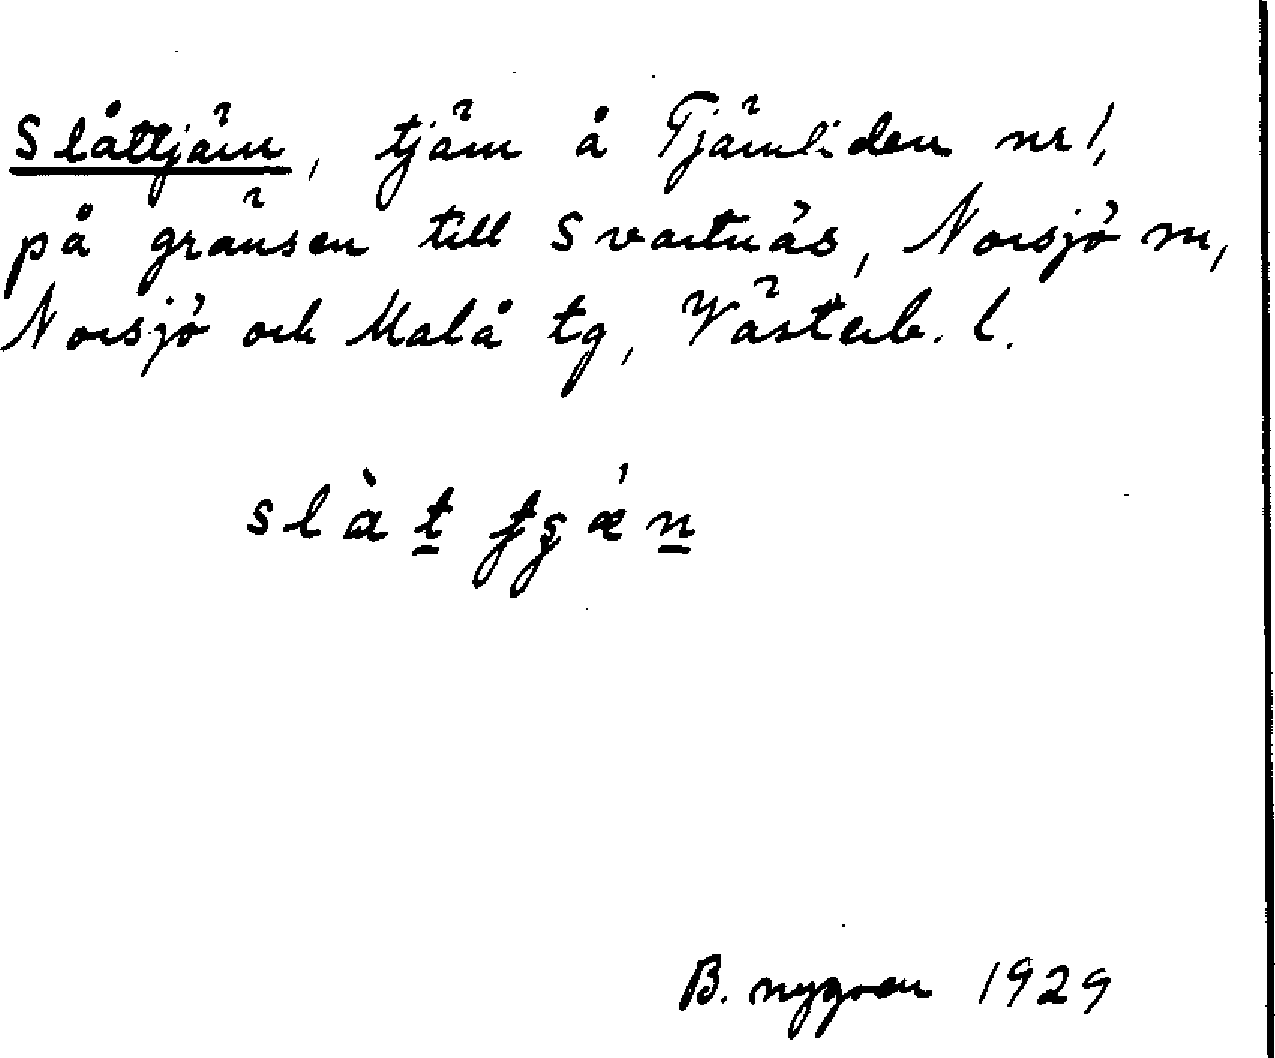 Slåttjärn, tjärn å Tjärnliden nr 1,
på gränsen till Svartnäs, Norsjö sn,
Norsjö och Malå tg, Västerb. l.
slàt tʂǽn
B. Nygren 1929